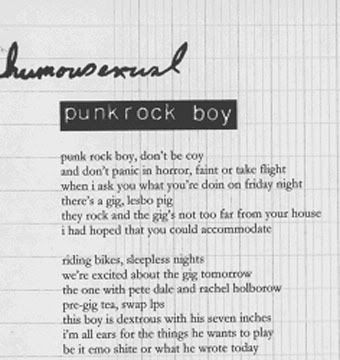 humousexual
punk rock boy
punk rock boy, don't be coy
and don't panic in horror, faint or take flight
when i ask you what you're doin on friday night
there's a gig, lesbo pig
they rock and the gig's not too far from your house
i had hoped that you could accommodate
riding bikes, sleepless nights
we're excited about the gig tomorrow
the one with pete dale and rachel holborow
pre-gig tea, swap lps
this boy is dextrous with his seven inches
i'm all ears for the things he wants to play
be it emo shite or what he wrote today